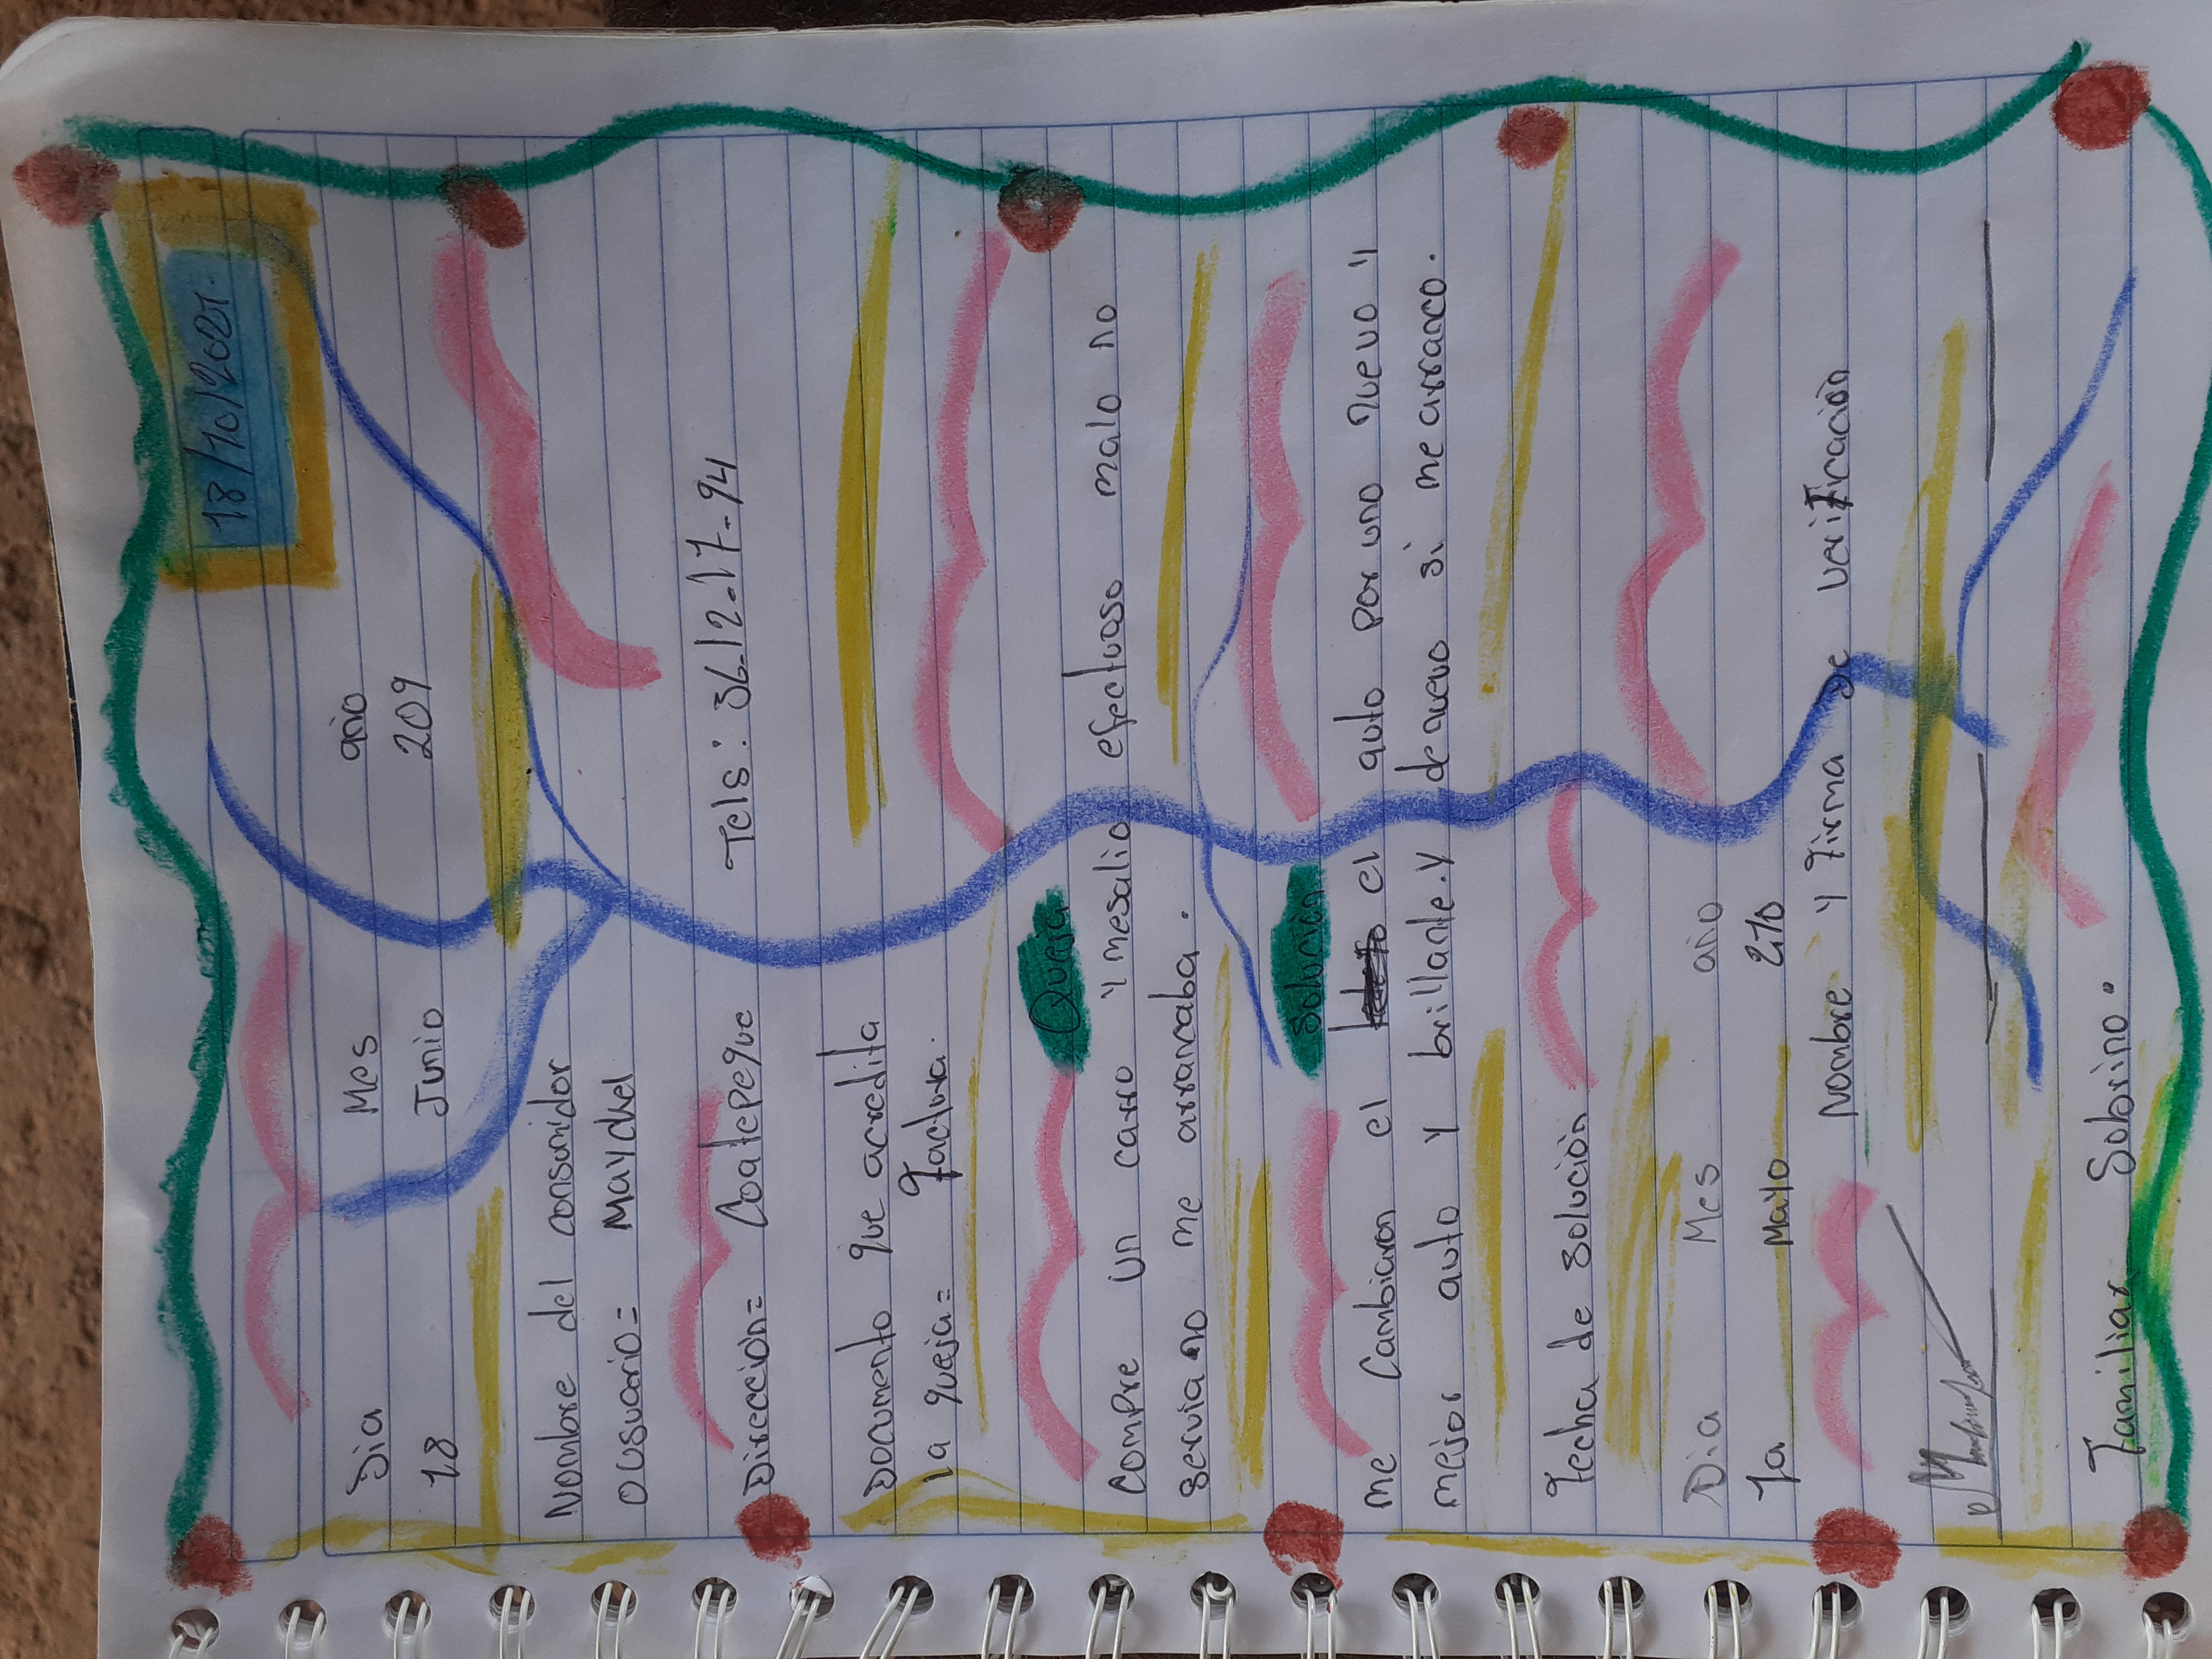 18/10/2021.
Dia Mes año
18 Junio 209
Nombre del consumidor
ousuario= Maychel
Dirección= Coatepeque Tels: 36-12-17-94
Documento que acredita
la queja= Factura.
Queja
Compre un carro y mesalio efectuoso malo no
servia no me arrancaba.
Solución
me Cambiaron el el auto por uno nuevo y
mejor auto y brillante.y denuevo si me arranco.
Fecha de solución
Dia Mes año
1a Mayo 210
Nombre y firma de verificación
Familiar Sobrino.